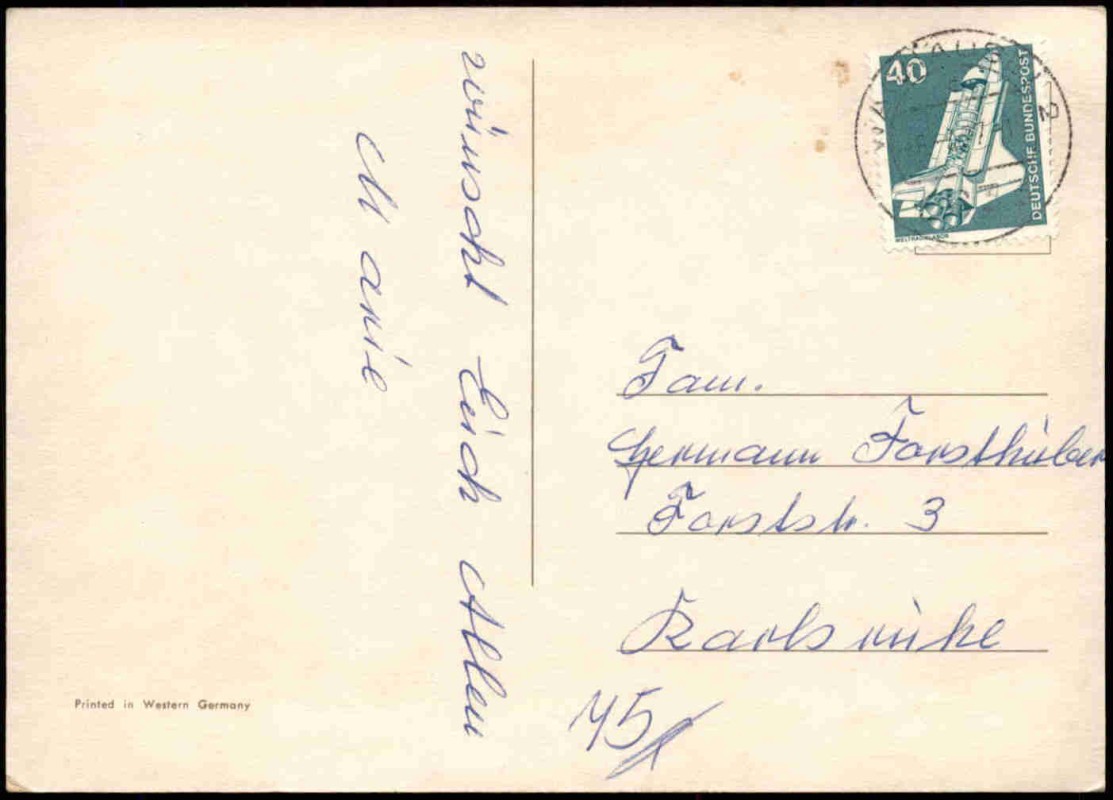 wünscht Euch Allen
Marie
40
DEUTSCHE BUNDESPOST
WELTRAUMLABOR
2
Fam.
Hermann Forsthuber
Forststr. 3
Karlsruhe
Printed in Western Germany